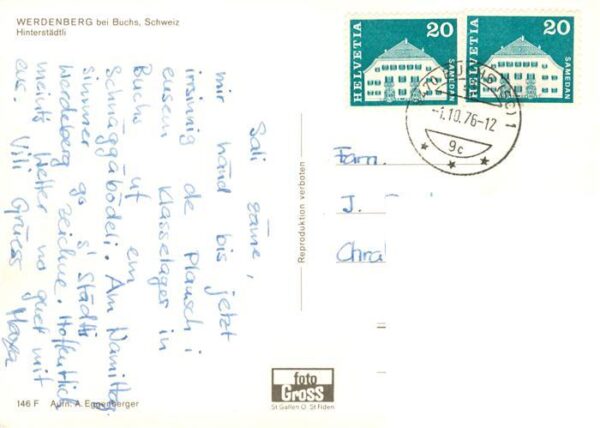 WERDENBERG bei Buchs, Schweiz
Hinterstädtli
HELVETIA 20 SAMEDAN
HELVETIA 20 SAMEDAN
-1.10.76-12
9c
Sali zäme,
mir händ bis jetzt
irrsinnig de Plausch i
eusem Klasselager in
Buchs uf em
Schnäggäbödeli. Am Namittag
simmer go s'Städtli
Werdeberg go zeichne. Hoffentlich
meints Wetter no guet mit
eus. Vili Grüess
Fam.
J.
Chral
Reproduktion verboten
foto
Gross
St Gallen O. St Fiden
146 F Aufn. A. Eggenberger